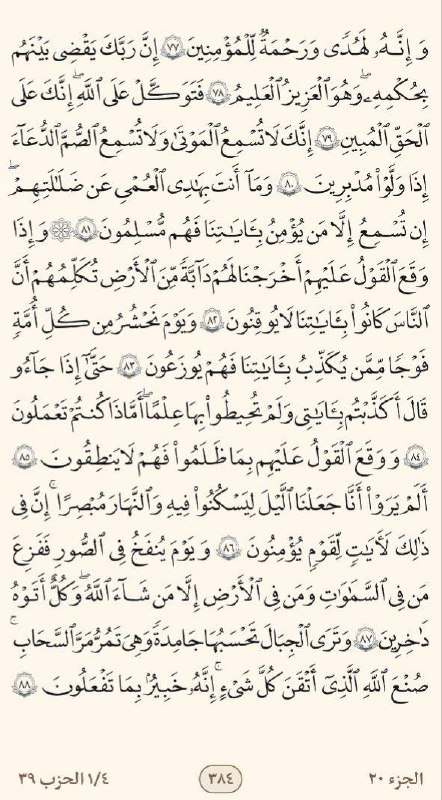 وَإِنَّهُۥ لَهُدًى وَرَحْمَةٌ لِّلْمُؤْمِنِينَ ٧٧ إِنَّ رَبَّكَ يَقْضِى بَيْنَهُم
بِحُكْمِهِۦ ۚ وَهُوَ ٱلْعَزِيزُ ٱلْعَلِيمُ ٧٨ فَتَوَكَّلْ عَلَى ٱللَّهِ ۖ إِنَّكَ عَلَى
ٱلْحَقِّ ٱلْمُبِينِ ٧٩ إِنَّكَ لَا تُسْمِعُ ٱلْمَوْتَىٰ وَلَا تُسْمِعُ ٱلصُّمَّ ٱلدُّعَآءَ
إِذَا وَلَّوْا۟ مُدْبِرِينَ ٨٠ وَمَآ أَنتَ بِهَـٰدِى ٱلْعُمْىِ عَن ضَلَـٰلَتِهِمْ ۖ
إِن تُسْمِعُ إِلَّا مَن يُؤْمِنُ بِـَٔايَـٰتِنَا فَهُم مُّسْلِمُونَ ٨١ ۞ وَإِذَا
وَقَعَ ٱلْقَوْلُ عَلَيْهِمْ أَخْرَجْنَا لَهُمْ دَآبَّةً مِّنَ ٱلْأَرْضِ تُكَلِّمُهُمْ أَنَّ
ٱلنَّاسَ كَانُوا۟ بِـَٔايَـٰتِنَا لَا يُوقِنُونَ ٨٢ وَيَوْمَ نَحْشُرُ مِن كُلِّ أُمَّةٍ
فَوْجًا مِّمَّن يُكَذِّبُ بِـَٔايَـٰتِنَا فَهُمْ يُوزَعُونَ ٨٣ حَتَّىٰٓ إِذَا جَآءُو
قَالَ أَكَذَّبْتُم بِـَٔايَـٰتِى وَلَمْ تُحِيطُوا۟ بِهَا عِلْمًا أَمَّاذَا كُنتُمْ تَعْمَلُونَ
٨٤ وَوَقَعَ ٱلْقَوْلُ عَلَيْهِم بِمَا ظَلَمُوا۟ فَهُمْ لَا يَنطِقُونَ ٨٥
أَلَمْ يَرَوْا۟ أَنَّا جَعَلْنَا ٱلَّيْلَ لِيَسْكُنُوا۟ فِيهِ وَٱلنَّهَارَ مُبْصِرًا ۚ إِنَّ فِى
ذَٰلِكَ لَـَٔايَـٰتٍ لِّقَوْمٍ يُؤْمِنُونَ ٨٦ وَيَوْمَ يُنفَخُ فِى ٱلصُّورِ فَفَزِعَ
مَن فِى ٱلسَّمَـٰوَٰتِ وَمَن فِى ٱلْأَرْضِ إِلَّا مَن شَآءَ ٱللَّهُ ۚ وَكُلٌّ أَتَوْهُ
دَٰخِرِينَ ٨٧ وَتَرَى ٱلْجِبَالَ تَحْسَبُهَا جَامِدَةً وَهِىَ تَمُرُّ مَرَّ ٱلسَّحَابِ ۚ
صُنْعَ ٱللَّهِ ٱلَّذِىٓ أَتْقَنَ كُلَّ شَىْءٍ ۚ إِنَّهُۥ خَبِيرٌۢ بِمَا تَفْعَلُونَ ٨٨
الجزء ٢٠ ٣٨٤ ١/٤ الحزب ٣٩